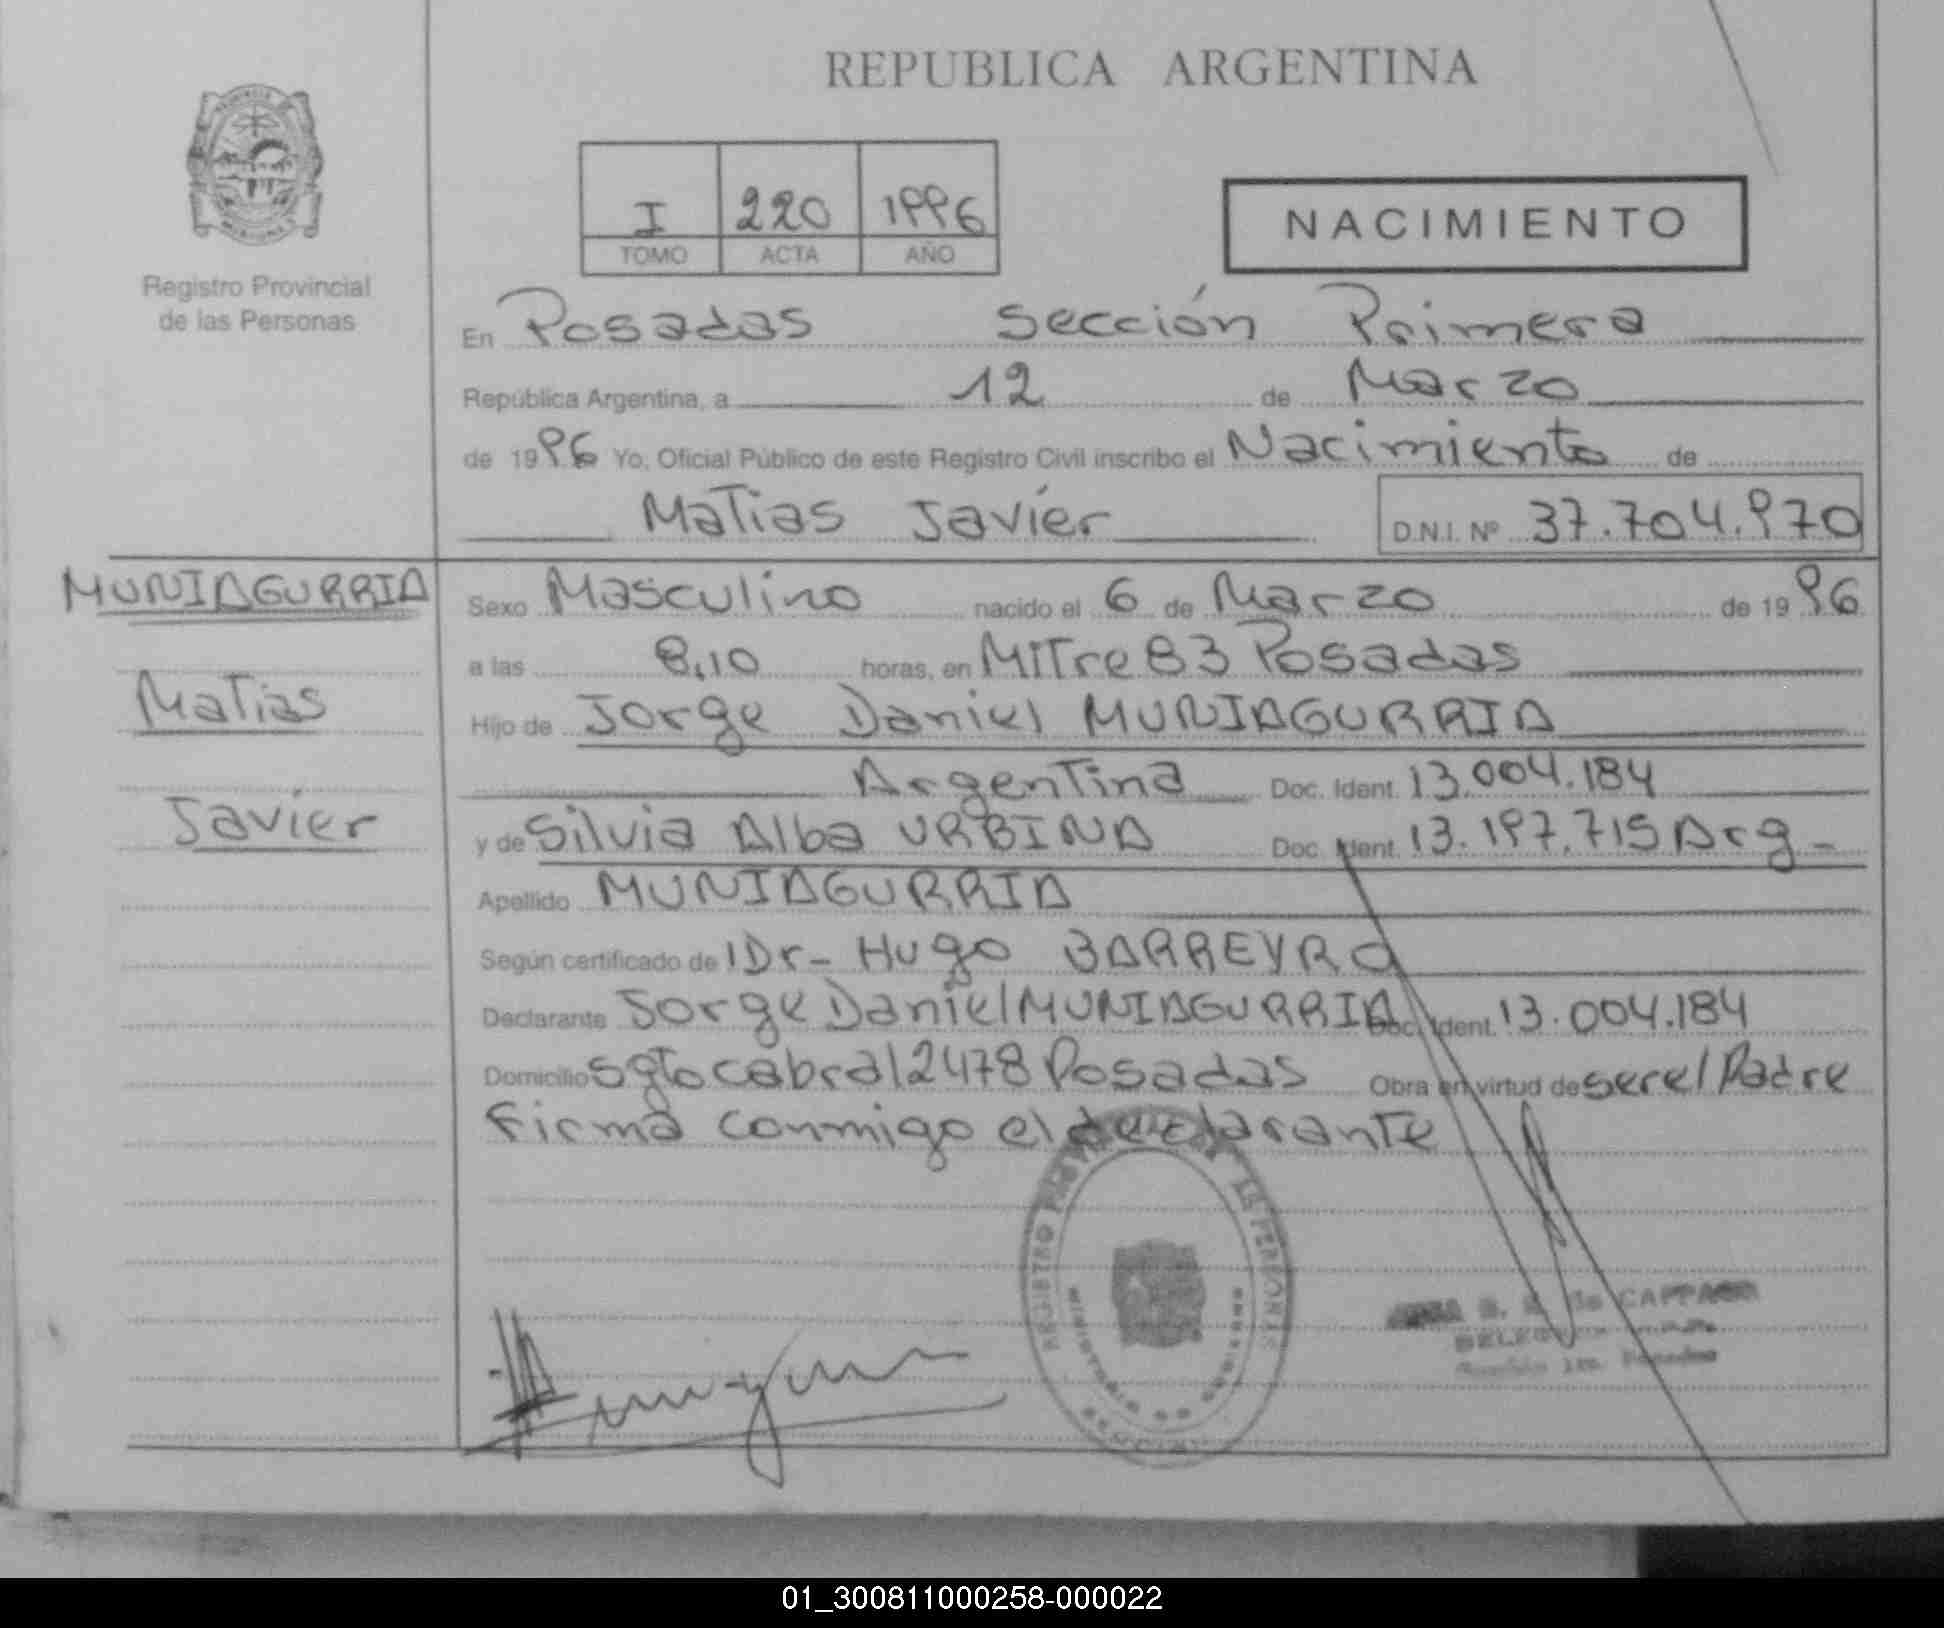 REPUBLICA ARGENTINA
I 220 1996
TOMO ACTA AÑO
NACIMIENTO
Registro Provincial
de las Personas
En Posadas sección Primera
República Argentina, a 12 de Marzo
de 1996 Yo, Oficial Público de este Registro Civil inscribo el Nacimiento de
Matias Javiér D.N.I. Nº 37.704.970
MUNIAGURRIA
Matias
Javier
Sexo Masculino nacido el 6 de Marzo de 1996
a las 8,10 horas, en Mitre 83 Posadas
Hijo de Jorge Daniel MUNIAGURRIA
Argentina Doc. Ident. 13.004.184
y de Silvia Alba URBINA Doc. Ident. 13.197.715 Arg-
Apellido MUNIAGURRIA
Según certificado de l Dr- Hugo BARREYRO
Declarante Jorge Daniel MUNIAGURRIA Doc. Ident. 13.004.184
Domicilio sgto cabral 2478 Posadas Obra en virtud de ser el Padre
Firma conmigo el declarante
REGISTRO PROVINCIAL DE LAS PERSONAS
MINISTERIO DE GOBIERNO
de CAPPARO
01_300811000258-000022